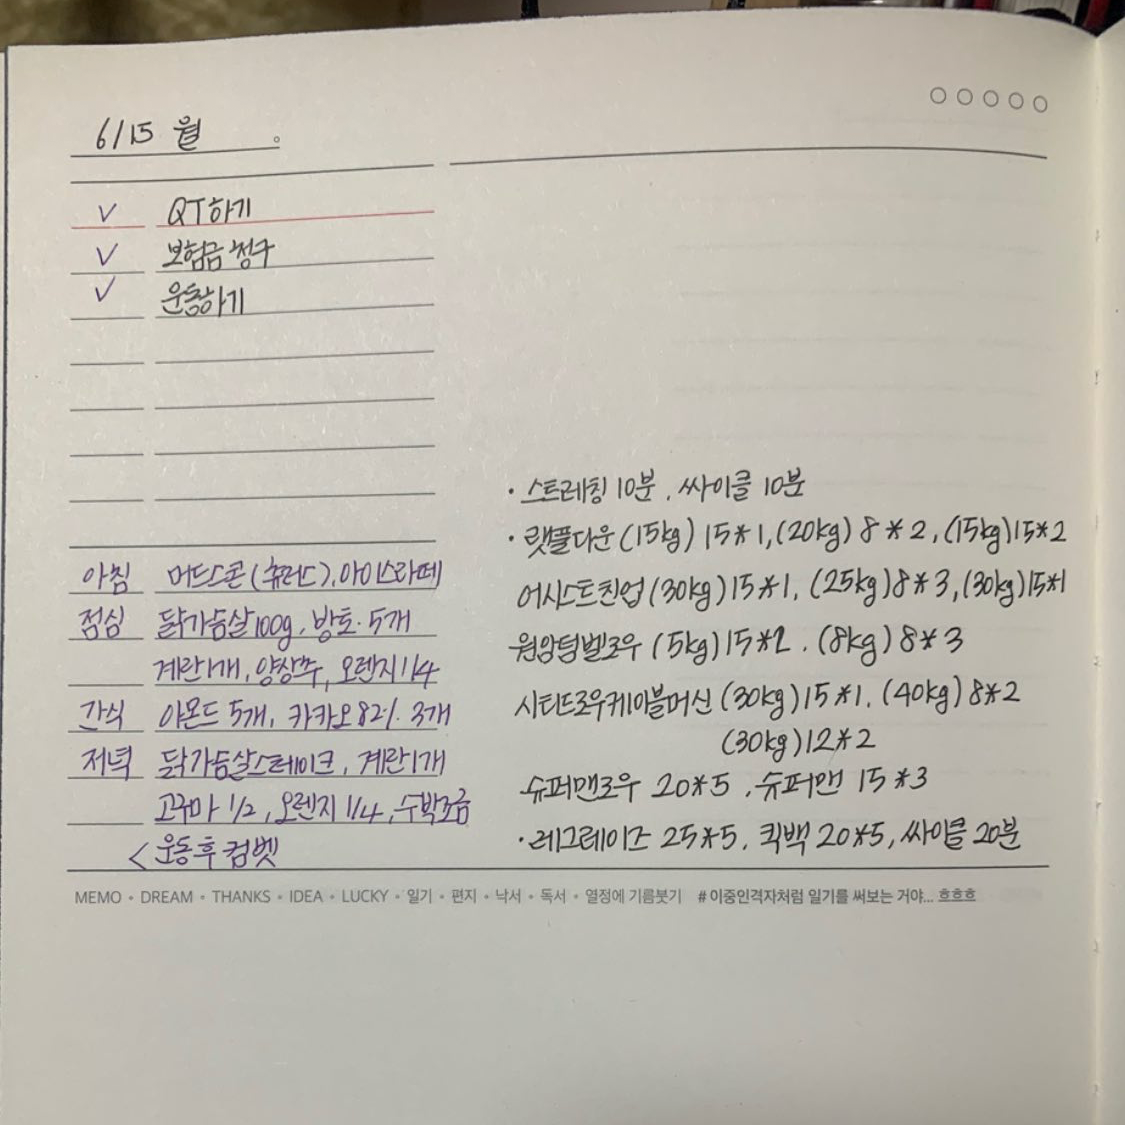 6/15 월
QT하기
보험금 청구
운동하기
아침 머드스콘(츄러스), 아이스라떼
점심 닭가슴살100g, 방토·5개
계란1개, 양상추, 오렌지1/4
간식 아몬드 5개, 카카오82% 3개
저녁 닭가슴살스테이크, 계란1개
고구마 1/2, 오렌지 1/4, 수박조금
< 운동 후 컴벳
· 스트레칭 10분, 싸이클 10분
· 랫풀다운 (15kg) 15*1, (20kg) 8*2, (15kg)15*2
어시스트친업 (30kg) 15*1, (25kg) 8*3, (30kg)15*1
원암덤벨로우 (5kg) 15*2, (8kg) 8*3
시티드로우케이블머신 (30kg) 15*1, (40kg) 8*2
(30kg) 12*2
슈퍼맨로우 20*5, 슈퍼맨 15*3
· 레그레이즈 25*5, 킥백 20*5, 싸이클 20분
MEMO • DREAM • THANKS • IDEA • LUCKY • 일기 • 편지 • 낙서 • 독서 • 열정에 기름붓기 #이중인격자처럼 일기를 써보는 거야... 흐흐흐